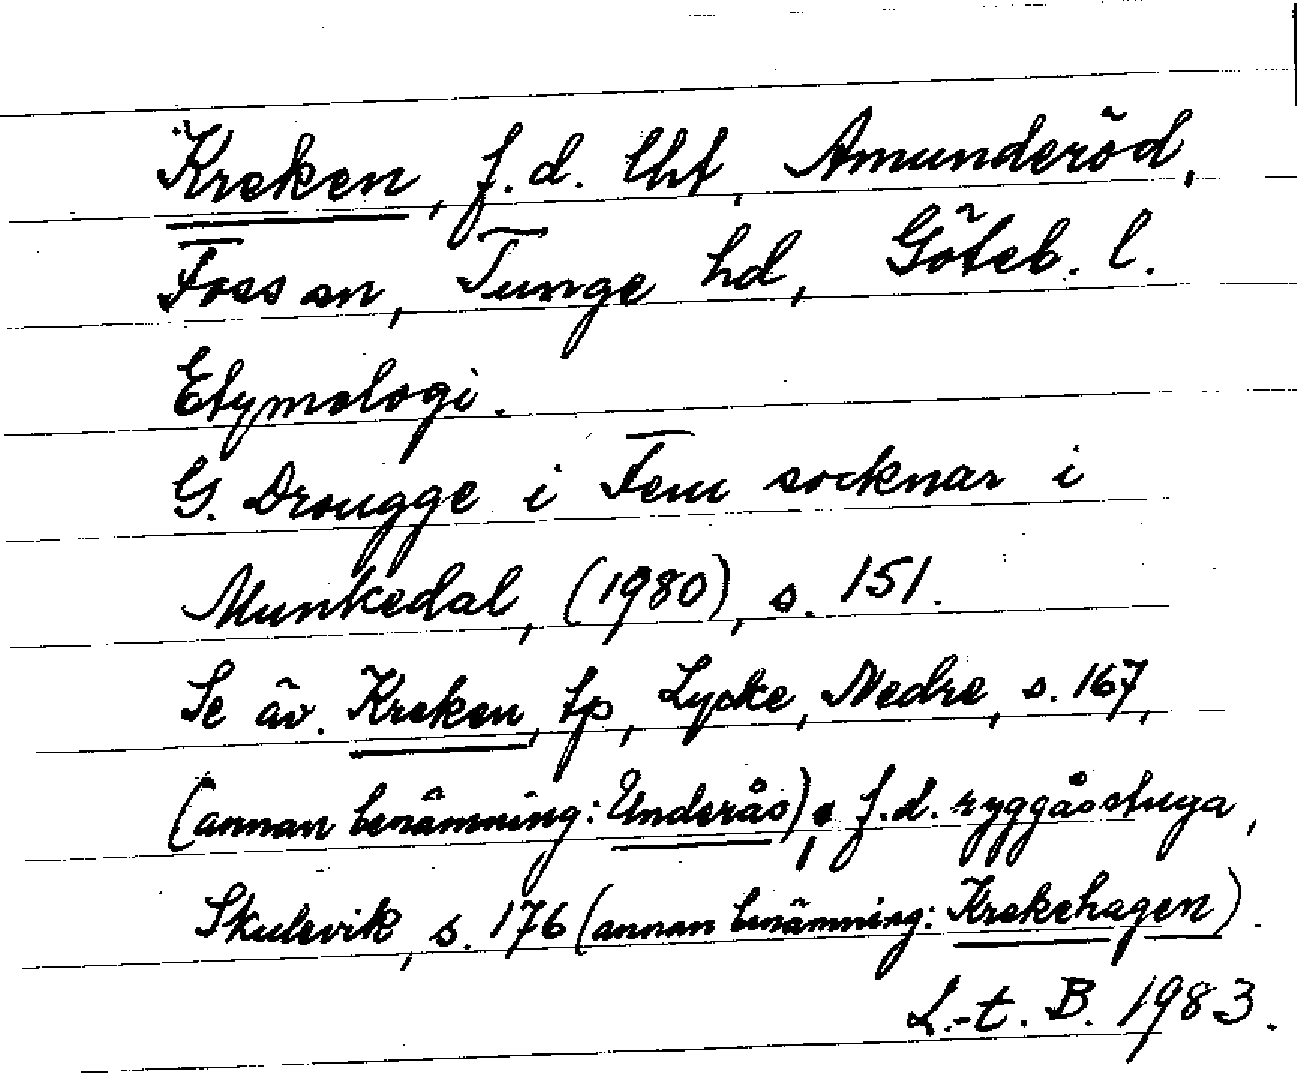 Kreken, f.d. lht, Amunderöd,
Foss sn, Tunge hd, Göteb. l.
Etymologi.
G. Drougge i Fem socknar i
Munkedal, (1980), s. 151.
Se äv. Kreken, tp, Lycke, Nedre, s. 167,
(annan benämning: Underås), f.d. ryggåsstuga,
Skulevik, s. 176 (annan benämning: Krekehagen).
L.-t. B. 1983.